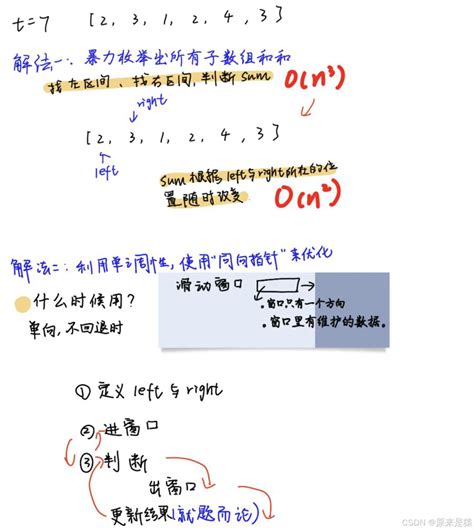 t=7 [2, 3, 1, 2, 4, 3]
解法一:暴力枚举出所有子数组和和
找左区间、找右区间,判断sum O(n³)
right
[2, 3, 1, 2, 4, 3]
left
sum根据left与right所在的位
置随时改变 O(n²)
解法二:利用单调性,使用"同向指针"来优化
什么时候用?
单向,不回退时
滑动窗口
窗口只有一个方向
窗口里有维护的数据。
① 定义left与right
② 进窗口
③ 判断
出窗口
更新结果(就题而论)
CSDN @原来是猿